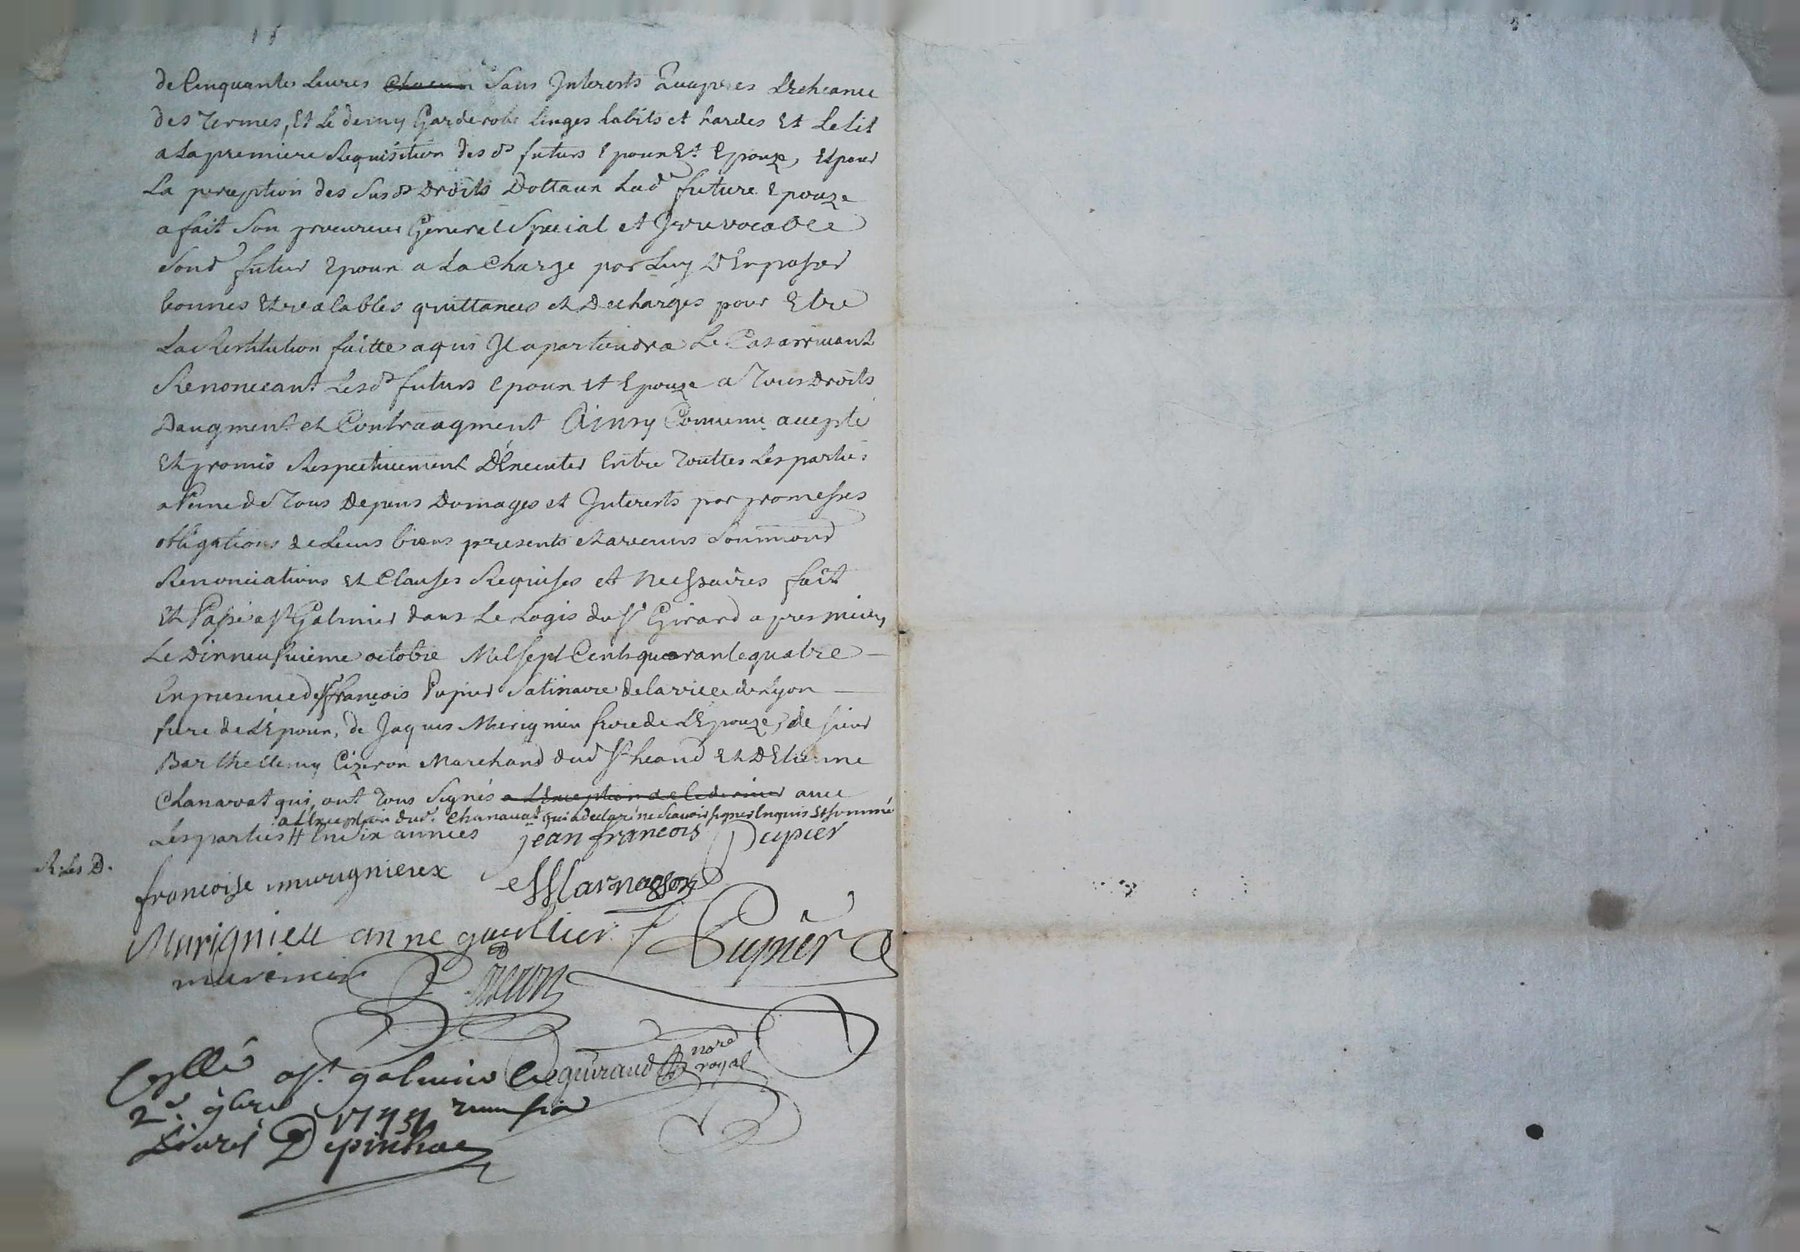 de Cinquante Livres chacun sans Interests qu'apres L'Echeance
des Termes, Et Le demy Garderobe linges habits et hardes Et Le lit
a La premiere Requisition des ds futurs Epoux Et Epouze, Et pour
La perception des Susds Droits Dottaux Lade future Epouze
a fait Son procureur General Special et Irrevocable
Sond futur Epoux a La Charge par Luy D'En passer
bonnes Et valables quittances et Decharges pour Etre
La Restitution faitte a qui Il apartiendra Le Cas arrivant
Renonceant Lesds futurs Epoux Et Epouze a Tous Droits
Daugment et Contraugment Ainsy Convenu accepté
Et promis Respectivement D'Executer Entre Touttes Les parties
a Peine de Tous Depens Domages et Interests par promesses
obligations de Leurs biens presents et avenirs
Renonciations Et Clauses Requises et necessaires fait
Et Passé a St Galmier dans Le Logis du Sr Girard apres midy
Le Dixneufvieme octobre Mil sept Cents quarante quatre
En presence de Sr françois Pupier Satinaire de la ville de Lyon
frere de L'Epoux, de Jaques Murignieu frere de L'Epouze, de sieur
Barthellemy Cizeron Marchand dud St heand Et D'Etienne
Chanavat qui ont Tous Signés a L'Exception de Ce dernier avec
a L'Exception dud. Chanavat qui a declaré ne Scavoir signer Enquis Et sommé
Les parties # En Six années jean francois Pupier
R. Les D.
francoise murignieux
Murignieu anne gaultier F Pupier
Cizeron
Deguiraud nore
royal
Coллé a St galmier Le
2e 9bre 1744